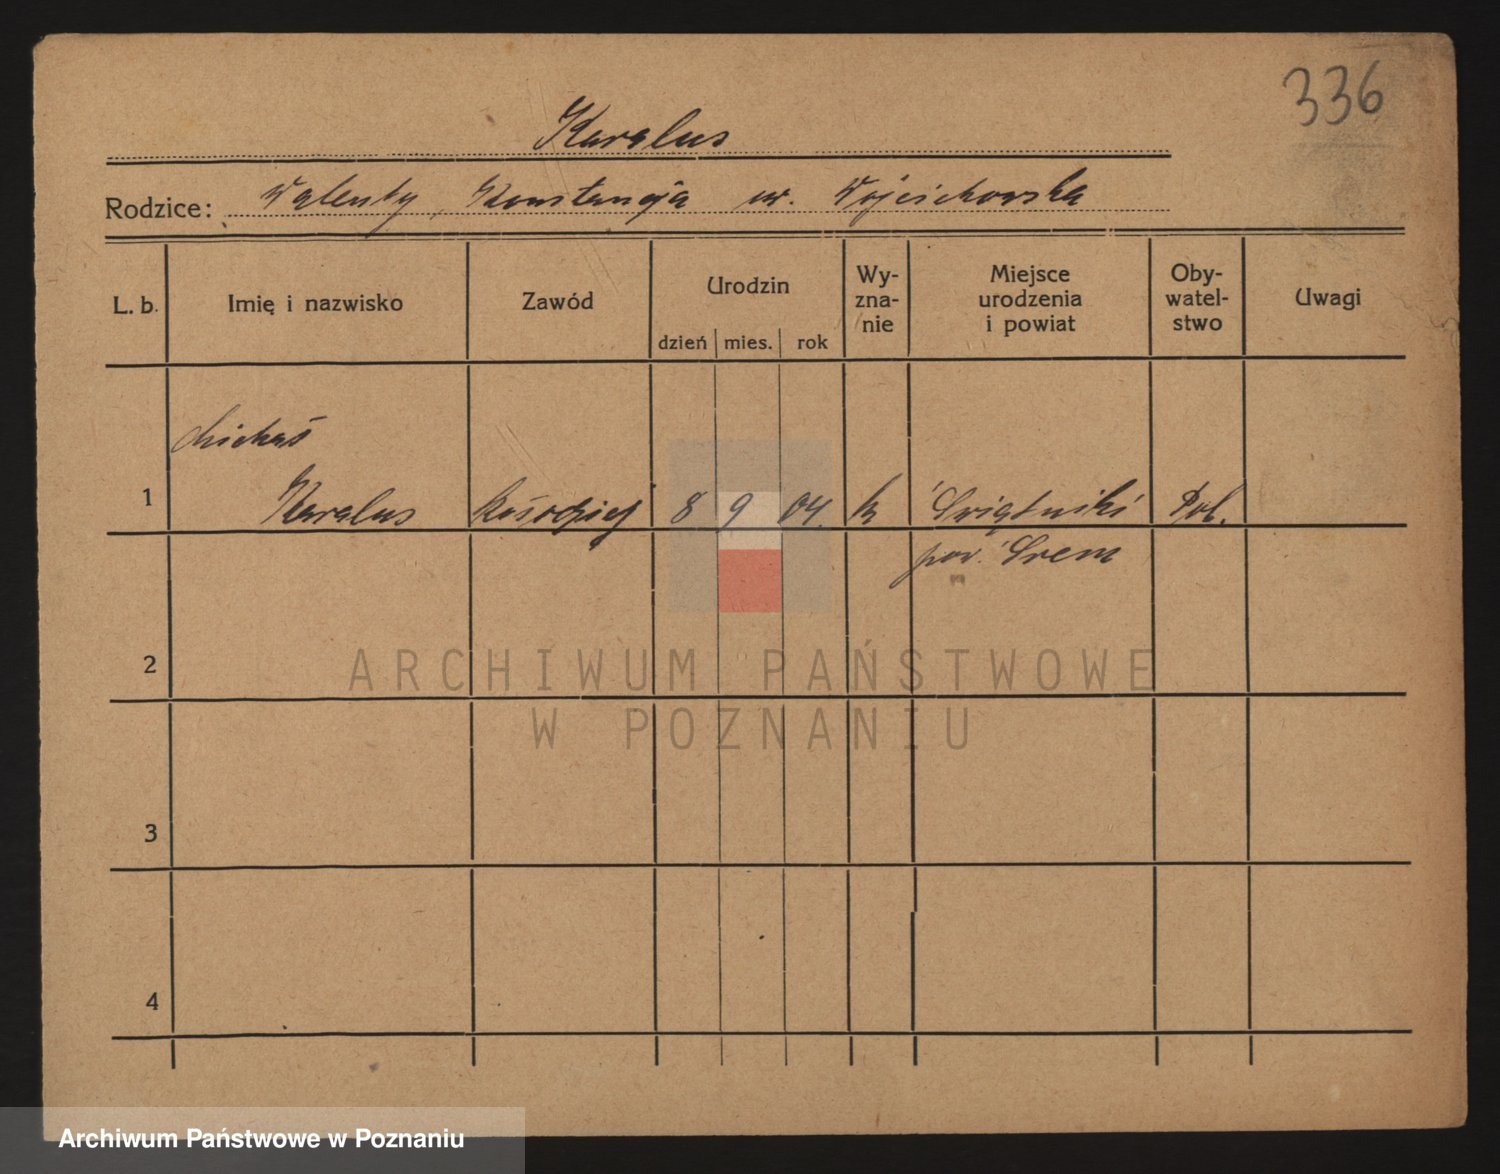 336
Karalus
Rodzice: Walenty, Konstancja ur. Wojciechowska
L. b. Imię i nazwisko Zawód Urodzin dzień mies. rok Wy-zna-nie Miejsce urodzenia i powiat Oby-watel-stwo Uwagi
Michał
1 Karalus kołodziej 8 9 04. k Świątniki Pol.
pow. Śrem
2
3
4
ARCHIWUM PAŃSTWOWE
W POZNANIU
Archiwum Państwowe w Poznaniu